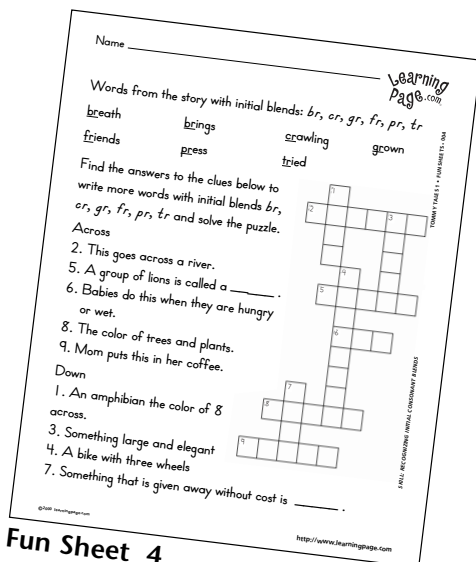 Name
Learning
Page.com
Words from the story with initial blends: br, cr, gr, fr, pr, tr
breath brings crawling grown
friends press tried
Find the answers to the clues below to
write more words with initial blends br,
cr, gr, fr, pr, tr and solve the puzzle.
Across
2. This goes across a river.
5. A group of lions is called a ______ .
6. Babies do this when they are hungry
or wet.
8. The color of trees and plants.
9. Mom puts this in her coffee.
Down
1. An amphibian the color of 8
across.
3. Something large and elegant
4. A bike with three wheels
7. Something that is given away without cost is ______ .
1
2 3
4
5
6
7
8
9
TOMMY TALES 1 • FUN SHEETS • 004
SKILL: RECOGNIZING INITIAL CONSONANT BLENDS
©2000 learningpage.com
http://www.learningpage.com
Fun Sheet 4